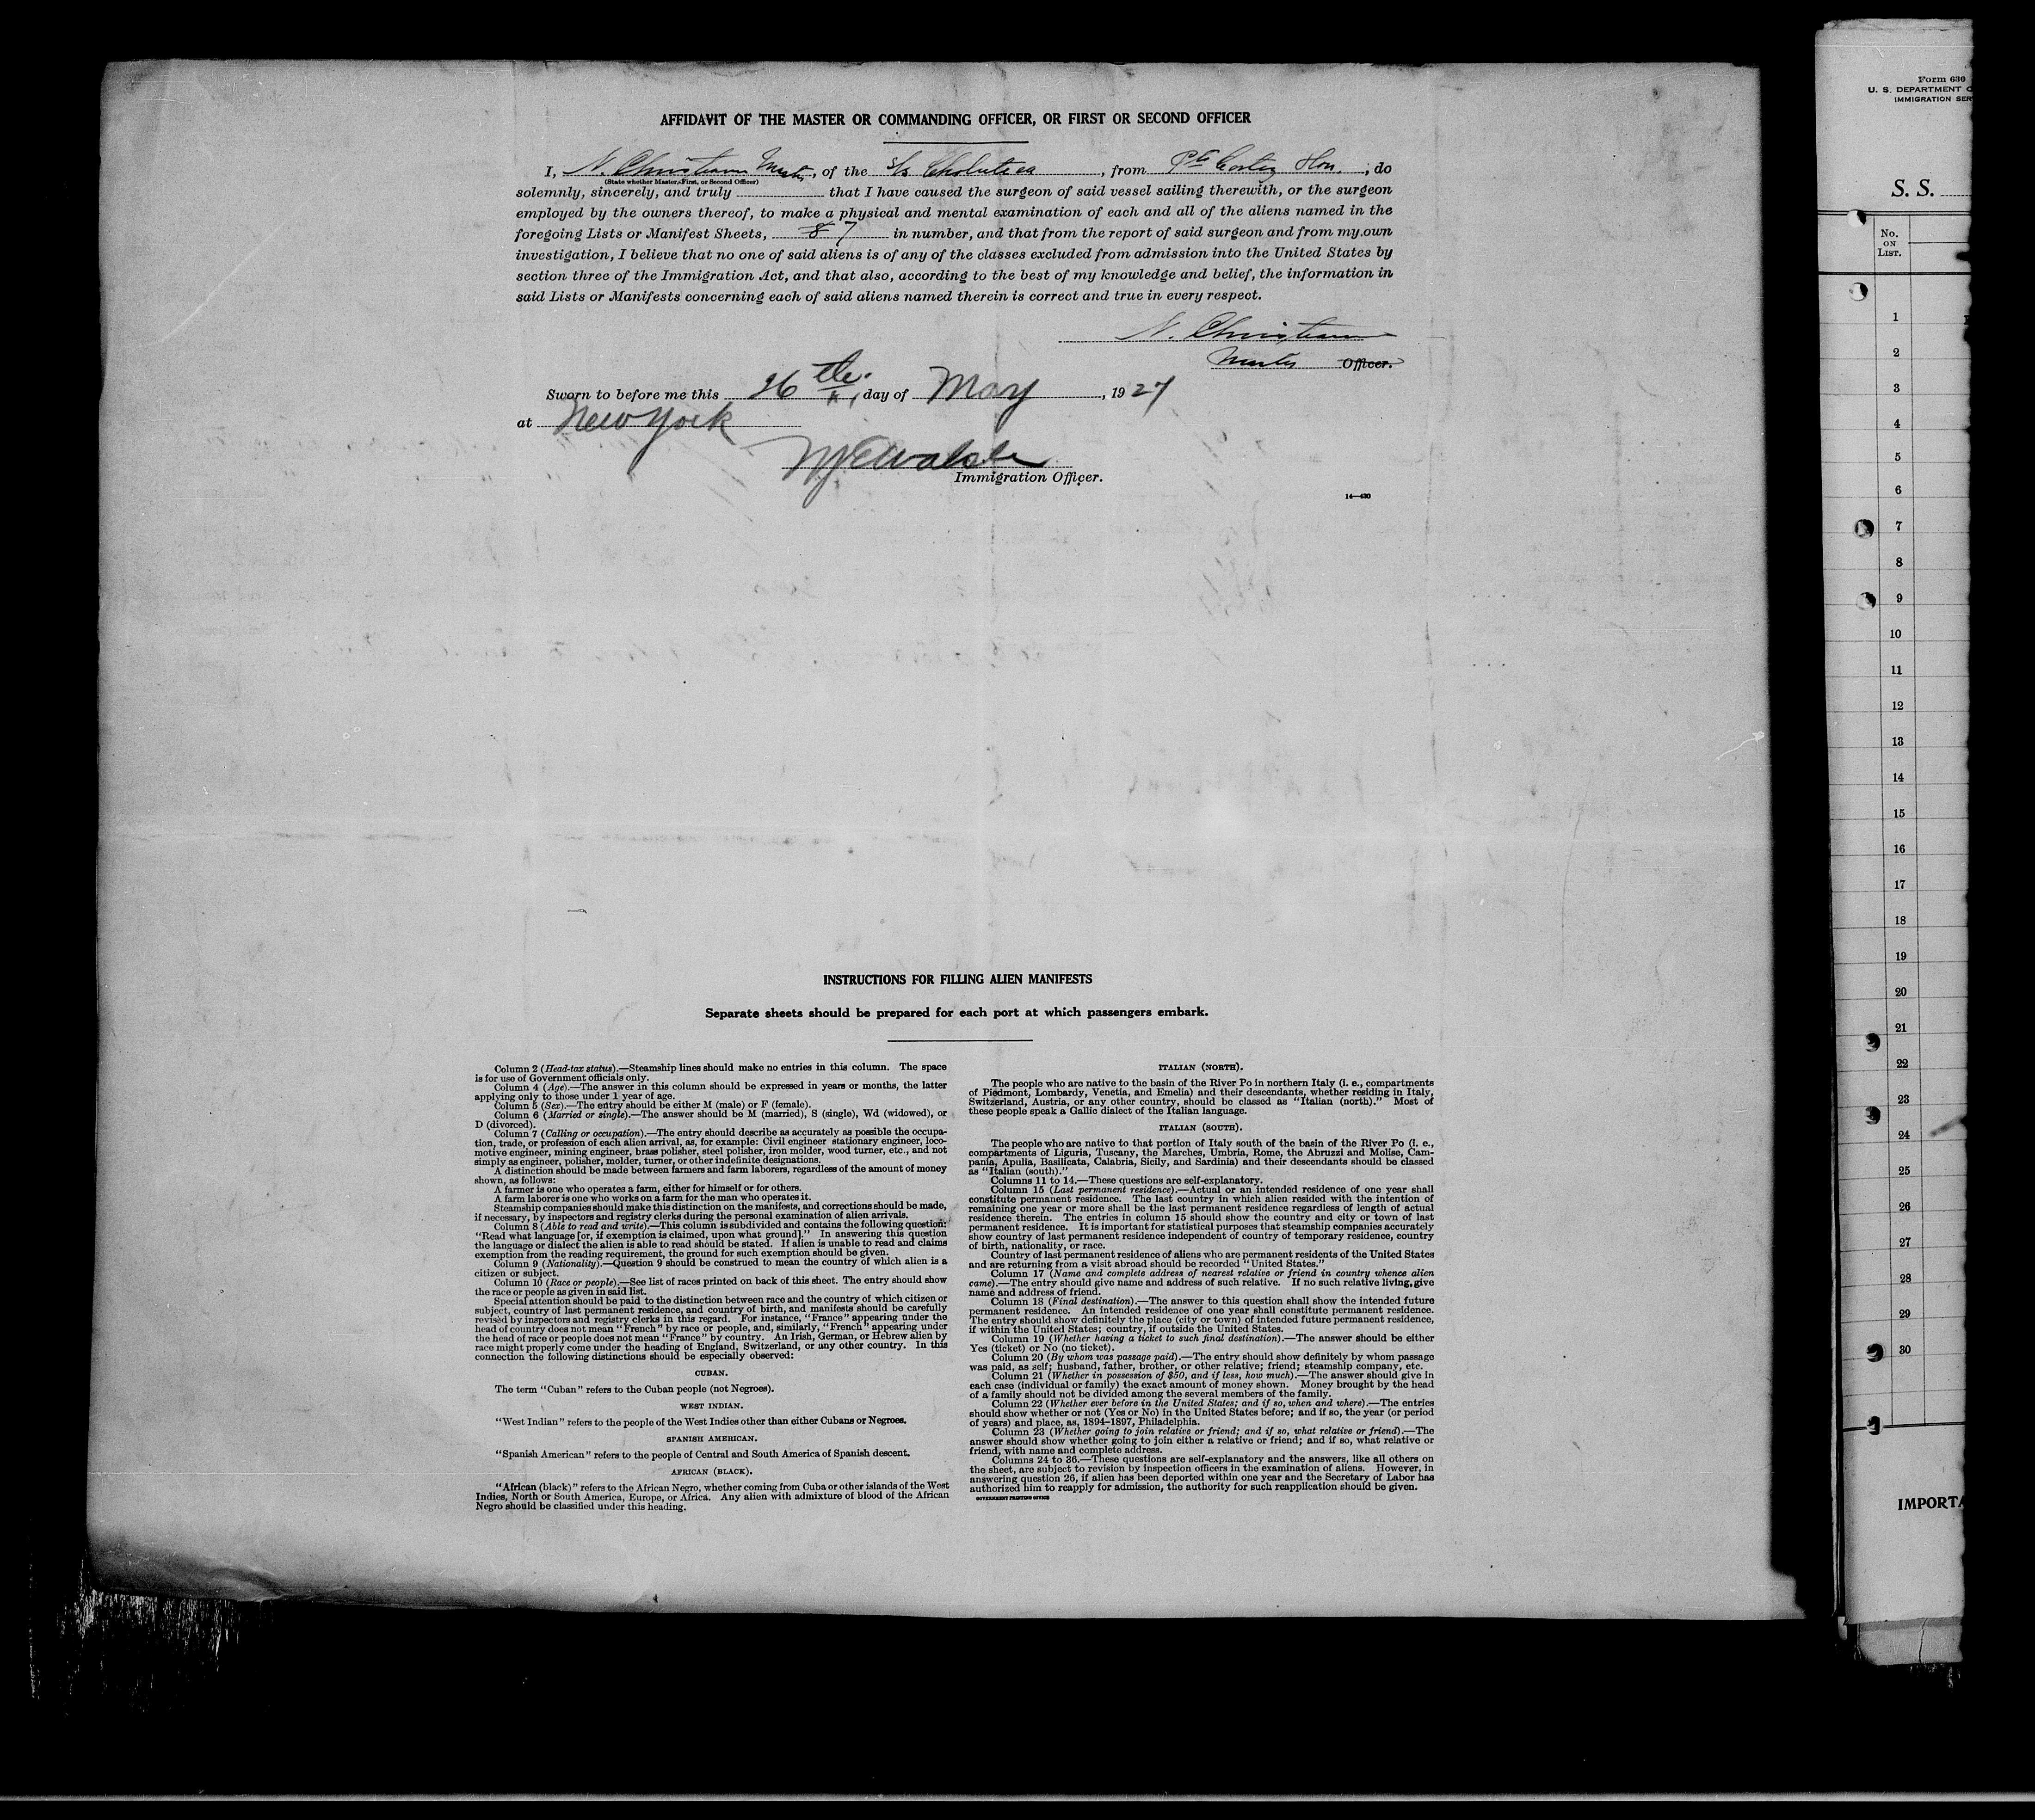 AFFIDAVIT OF THE MASTER OR COMMANDING OFFICER, OR FIRST OR SECOND OFFICER
I, N. Christiansen Master, of the S/s Choluteca, from Pto Cortez Hon., do
(State whether Master, First, or Second Officer)
solemnly, sincerely, and truly that I have caused the surgeon of said vessel sailing therewith, or the surgeon
employed by the owners thereof, to make a physical and mental examination of each and all of the aliens named in the
foregoing Lists or Manifest Sheets, 8 7 in number, and that from the report of said surgeon and from my own
investigation, I believe that no one of said aliens is of any of the classes excluded from admission into the United States by
section three of the Immigration Act, and that also, according to the best of my knowledge and belief, the information in
said Lists or Manifests concerning each of said aliens named therein is correct and true in every respect.
N. Christiansen
Master Officer.
Sworn to before me this 26th. day of May, 1927
at New York
Immigration Officer.
14—430
INSTRUCTIONS FOR FILLING ALIEN MANIFESTS
Separate sheets should be prepared for each port at which passengers embark.
Column 2 (Head-tax status).—Steamship lines should make no entries in this column. The space
is for use of Government officials only.
Column 4 (Age).—The answer in this column should be expressed in years or months, the latter
applying only to those under 1 year of age.
Column 5 (Sex).—The entry should be either M (male) or F (female).
Column 6 (Married or single).—The answer should be M (married), S (single), Wd (widowed), or
D (divorced).
Column 7 (Calling or occupation).—The entry should describe as accurately as possible the occupa-
tion, trade, or profession of each alien arrival, as, for example: Civil engineer stationary engineer, loco-
motive engineer, mining engineer, brass polisher, steel polisher, iron molder, wood turner, etc., and not
simply as engineer, polisher, molder, turner, or other indefinite designations.
A distinction should be made between farmers and farm laborers, regardless of the amount of money
shown, as follows:
A farmer is one who operates a farm, either for himself or for others.
A farm laborer is one who works on a farm for the man who operates it.
Steamship companies should make this distinction on the manifests, and corrections should be made,
if necessary, by inspectors and registry clerks during the personal examination of alien arrivals.
Column 8 (Able to read and write).—This column is subdivided and contains the following question:
"Read what language [or, if exemption is claimed, upon what ground]." In answering this question
the language or dialect the alien is able to read should be stated. If alien is unable to read and claims
exemption from the reading requirement, the ground for such exemption should be given.
Column 9 (Nationality).—Question 9 should be construed to mean the country of which alien is a
citizen or subject.
Column 10 (Race or people).—See list of races printed on back of this sheet. The entry should show
the race or people as given in said list.
Special attention should be paid to the distinction between race and the country of which citizen or
subject, country of last permanent residence, and country of birth, and manifests should be carefully
revised by inspectors and registry clerks in this regard. For instance, "France" appearing under the
head of country does not mean "French" by race or people, and, similarly, "French" appearing under
the head of race or people does not mean "France" by country. An Irish, German, or Hebrew alien by
race might properly come under the heading of England, Switzerland, or any other country. In this
connection the following distinctions should be especially observed:
CUBAN.
The term "Cuban" refers to the Cuban people (not Negroes).
WEST INDIAN.
"West Indian" refers to the people of the West Indies other than either Cubans or Negroes.
SPANISH AMERICAN.
"Spanish American" refers to the people of Central and South America of Spanish descent.
AFRICAN (BLACK).
"African (black)" refers to the African Negro, whether coming from Cuba or other islands of the West
Indies, North or South America, Europe, or Africa. Any alien with admixture of blood of the African
Negro should be classified under this heading.
ITALIAN (NORTH).
The people who are native to the basin of the River Po in northern Italy (i. e., compartments
of Piedmont, Lombardy, Venetia, and Emelia) and their descendants, whether residing in Italy,
Switzerland, Austria, or any other country, should be classed as "Italian (north)." Most of
these people speak a Gallic dialect of the Italian language.
ITALIAN (SOUTH).
The people who are native to that portion of Italy south of the basin of the River Po (i. e.,
compartments of Liguria, Tuscany, the Marches, Umbria, Rome, the Abruzzi and Molise, Cam-
pania, Apulia, Basilicata, Calabria, Sicily, and Sardinia) and their descendants should be classed
as "Italian (south)."
Columns 11 to 14.—These questions are self-explanatory.
Column 15 (Last permanent residence).—Actual or an intended residence of one year shall
constitute permanent residence. The last country in which alien resided with the intention of
remaining one year or more shall be the last permanent residence regardless of length of actual
residence therein. The entries in column 15 should show the country and city or town of last
permanent residence. It is important for statistical purposes that steamship companies accurately
show country of last permanent residence independent of country of temporary residence, country
of birth, nationality, or race.
Country of last permanent residence of aliens who are permanent residents of the United States
and are returning from a visit abroad should be recorded "United States."
Column 17 (Name and complete address of nearest relative or friend in country whence alien
came).—The entry should give name and address of such relative. If no such relative living, give
name and address of friend.
Column 18 (Final destination).—The answer to this question shall show the intended future
permanent residence. An intended residence of one year shall constitute permanent residence.
The entry should show definitely the place (city or town) of intended future permanent residence,
if within the United States; country, if outside the United States.
Column 19 (Whether having a ticket to such final destination).—The answer should be either
Yes (ticket) or No (no ticket).
Column 20 (By whom was passage paid).—The entry should show definitely by whom passage
was paid, as self; husband, father, brother, or other relative; friend; steamship company, etc.
Column 21 (Whether in possession of $50, and if less, how much).—The answer should give in
each case (individual or family) the exact amount of money shown. Money brought by the head
of a family should not be divided among the several members of the family.
Column 22 (Whether ever before in the United States; and if so, when and where).—The entries
should show whether or not (Yes or No) in the United States before; and if so, the year (or period
of years) and place, as, 1894–1897, Philadelphia.
Column 23 (Whether going to join relative or friend; and if so, what relative or friend).—The
answer should show whether going to join either a relative or friend; and if so, what relative or
friend, with name and complete address.
Columns 24 to 36.—These questions are self-explanatory and the answers, like all others on
the sheet, are subject to revision by inspection officers in the examination of aliens. However, in
answering question 26, if alien has been deported within one year and the Secretary of Labor has
authorized him to reapply for admission, the authority for such reapplication should be given.
GOVERNMENT PRINTING OFFICE
Form 630
U. S. DEPARTMENT O
IMMIGRATION SER
S. S.
No.
ON
LIST.
1
2
3
4
5
6
7
8
9
10
11
12
13
14
15
16
17
18
19
20
21
22
23
24
25
26
27
28
29
30
IMPORTA